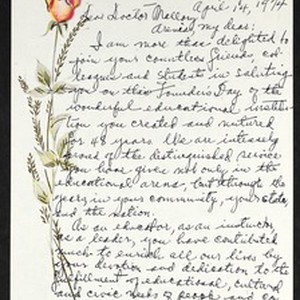 April 14, 1974
Dear Doctor Mallory,
my dear:
I am more than delighted to
join your countless friends col-
leagues and students in saluting
you on this Founder's Day of the
wonderful educational institu-
tion you created and nutured
for 48 years. We are intensely
proud of the distinguished service
you have given not only in the
educational arena but through the
years in your community, your state,
and the nation.
As an educator, as an instructor,
as a leader, you have contributed
much to enrich all our lives by
your devotion and dedication to the
fulfillment of educational, cultural
and civic needs of people and